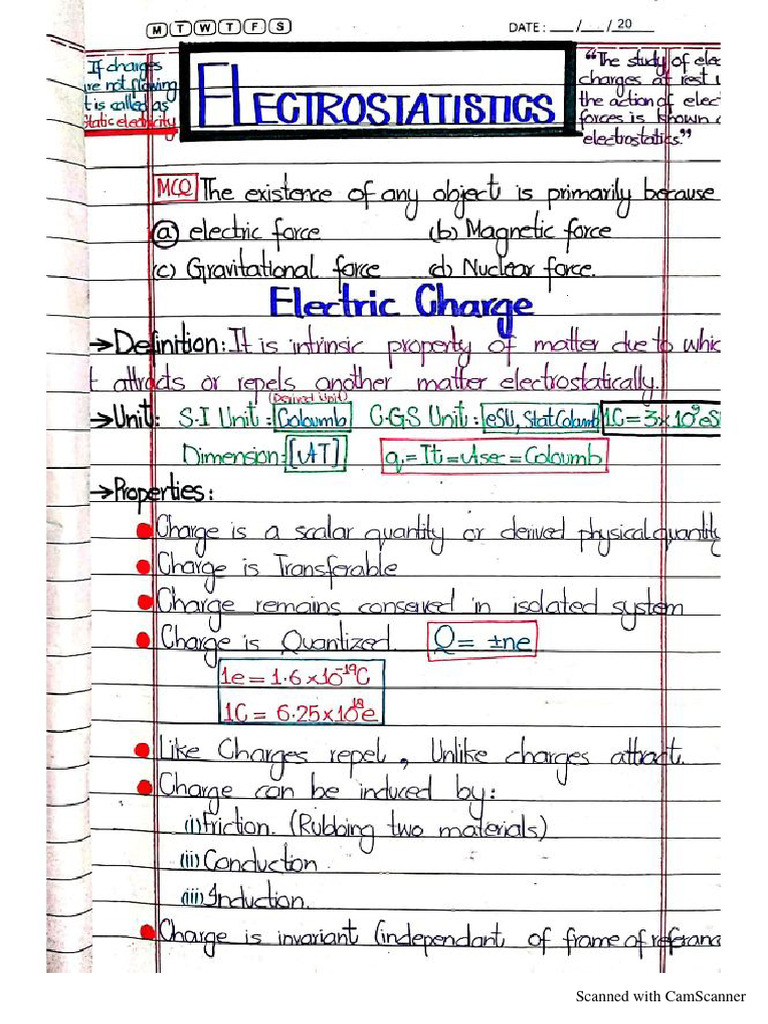 M T W T F S
DATE: __/__/20
If charges
are not flowing
it is called as
Static electricity
ELECTROSTATISTICS
"The study of elec
charges at rest u
the action of elec
forces is known a
electrostatics."
MCQ The existence of any object is primarily because
(a) electric force (b) Magnetic force
(c) Gravitational force (d) Nuclear force.
Electric Charge
→Definition: It is intrinsic property of matter due to whic
t attracts or repels another matter electrostatically.
(Derived Unit)
→Unit: S.I Unit: Coloumb C.G.S Unit: eSU, StatColoumb 1C=3x10⁹eS
Dimension: [AT] q=It=Asec=Coloumb
→Properties:
Charge is a scalar quantity or derived physical quantity
Charge is Transferable
Charge remains conserved in isolated system
Charge is Quantized. Q= ±ne
1e=1.6x10⁻¹⁹C
1C= 6.25x10¹⁸e
Like Charges repel, Unlike charges attract.
Charge can be induced by:
(i) Friction. (Rubbing two materials)
(ii) Conduction.
(iii) Induction.
Charge is invariant (independant of frame of referanc
Scanned with CamScanner